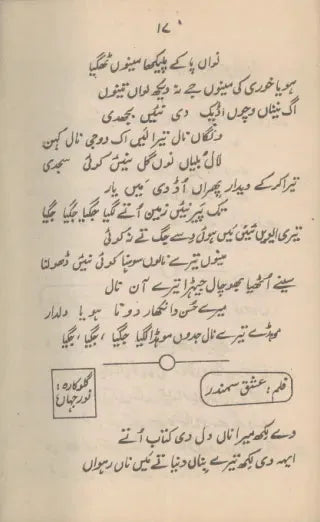 ۱۷
نواں پا کے پلیکھا مینوں ٹھگیا
ہو یا خوری کی مینوں جے نہ ویکھ لواں تینوں
اگ نیناں وچوں اڈیک دی نئیں بجھدی
ونگاں نال تیرا لیں اک دوجی نال کہن
لال بُلیاں نوں گل نیئں کوئی سجدی
تیرا کر کے دیدار پھراں اُڈدی میں یار
تک پیر نیئں زمین اُتے لگیا جگیا جگیا جگیا
تیری ایویں نیئں میں ہوئی وسے جگ تے نہ کوئی
مینوں تیرے نالوں سوہنا کوئی نیئں ڈھولنا
سینے اُٹھیا بھوچال جیہڑا تیرے آن نال
میرے حُسن دا نکھار دونا ہویا دلدار
موہڈے تیرے نال جدوں موہڈا لگیا جگیا ، جگیا ، جگیا
فلم : عشق سمندر
گلوکارہ : نور جہاں
وے لکھ میرا ناں دل دی کتاب اُتے
ایہہ دی لکھ تیرے بناں دنیا تے میں ناں رہواں